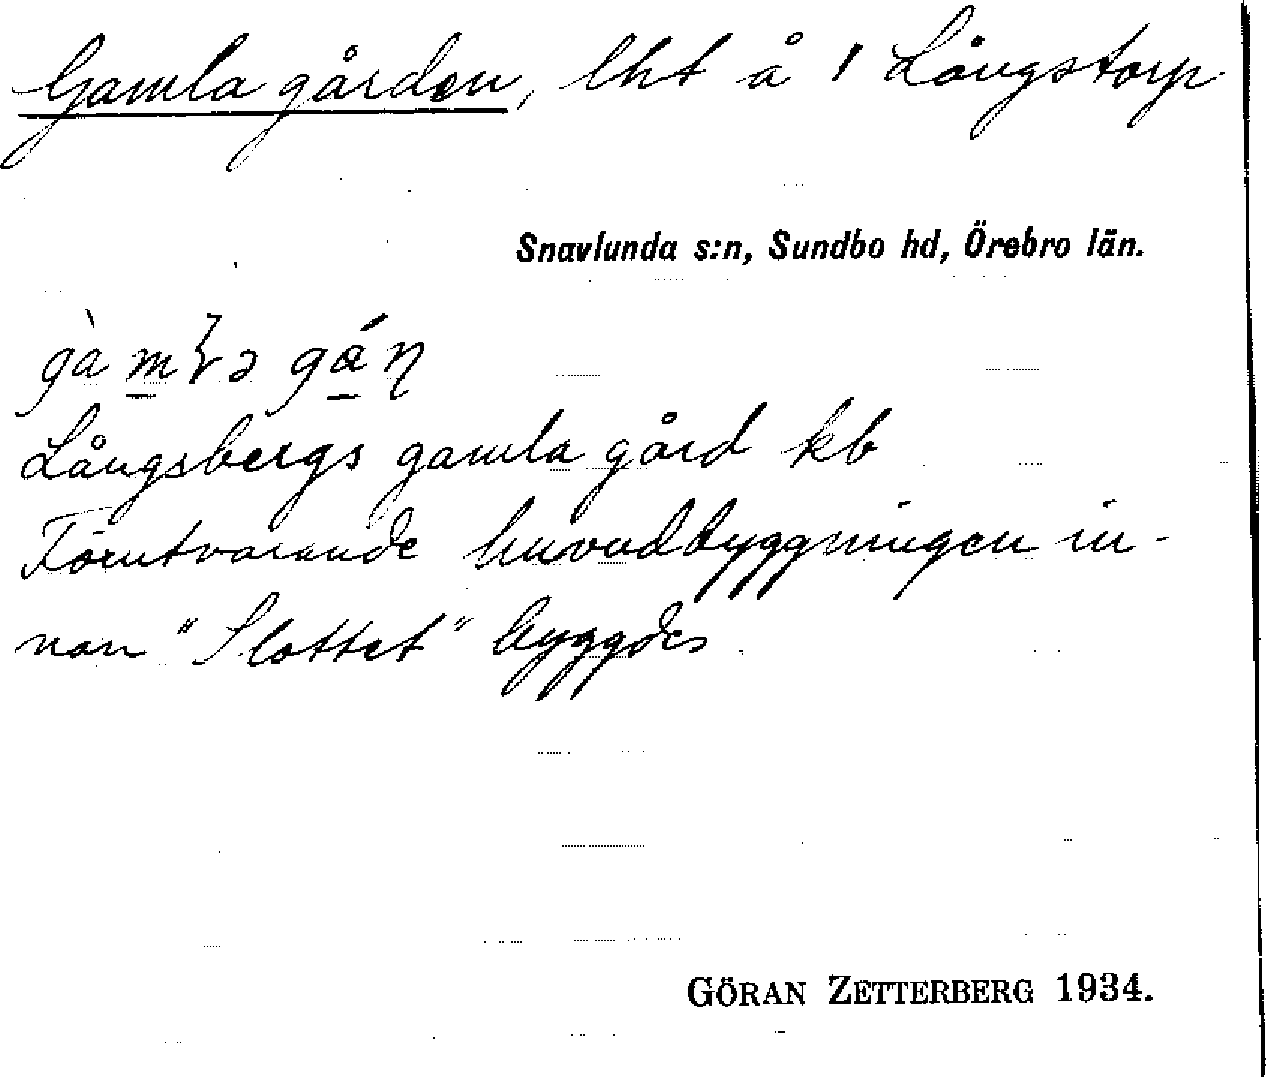 Gamla gården, lht å 1 Långstorp
Snavlunda s:n, Sundbo hd, Örebro län.
Långsbergs gamla gård kb
Förutvarande huvudbyggningen in-
nan "Slottet" byggdes
GÖRAN ZETTERBERG 1934.